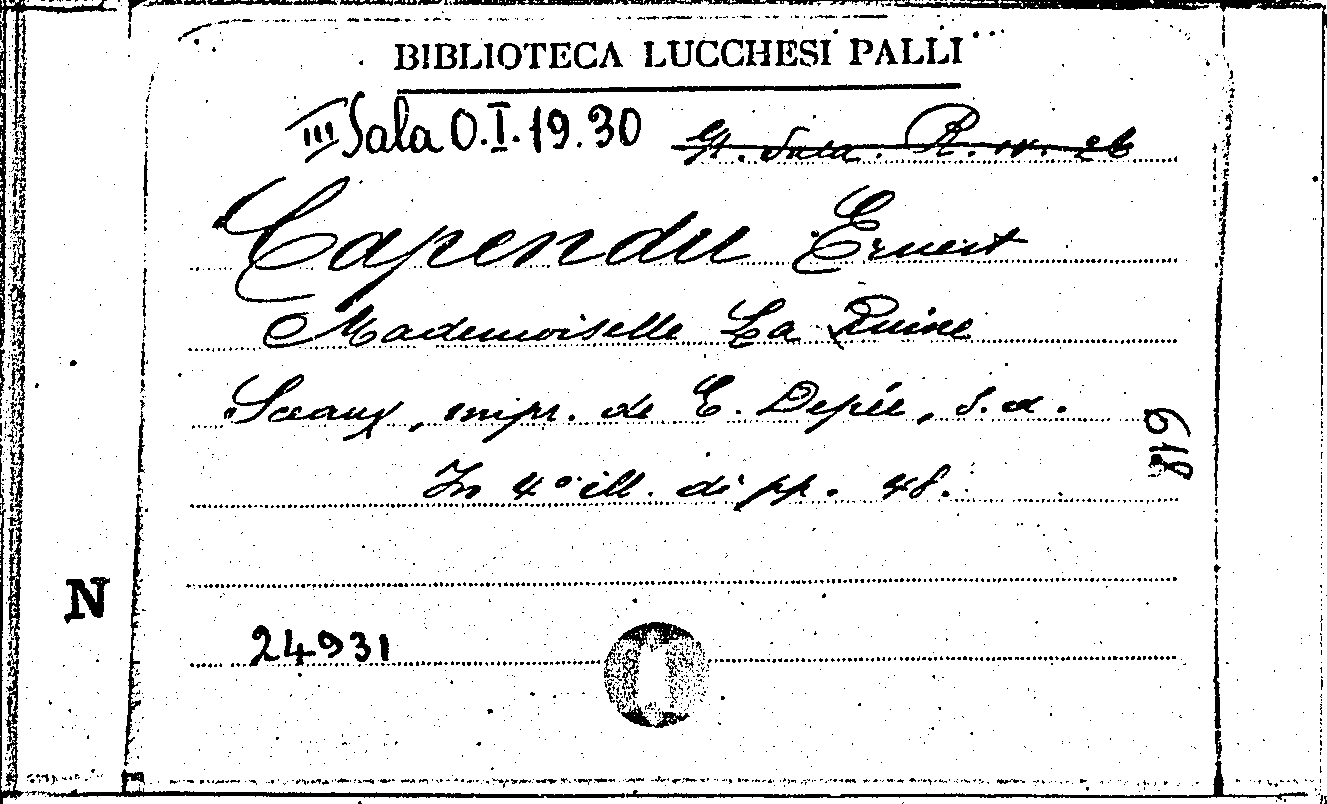 BIBLIOTECA LUCCHESI PALLI
III Sala O.I.19.30 Gr. Sala. R. IV. 26
Capendu Ernest
Mademoiselle La Ruine
Sceaux, impr. de E. Depée, s.d.
In 4° ill. di pp. 48.
819
N
24931